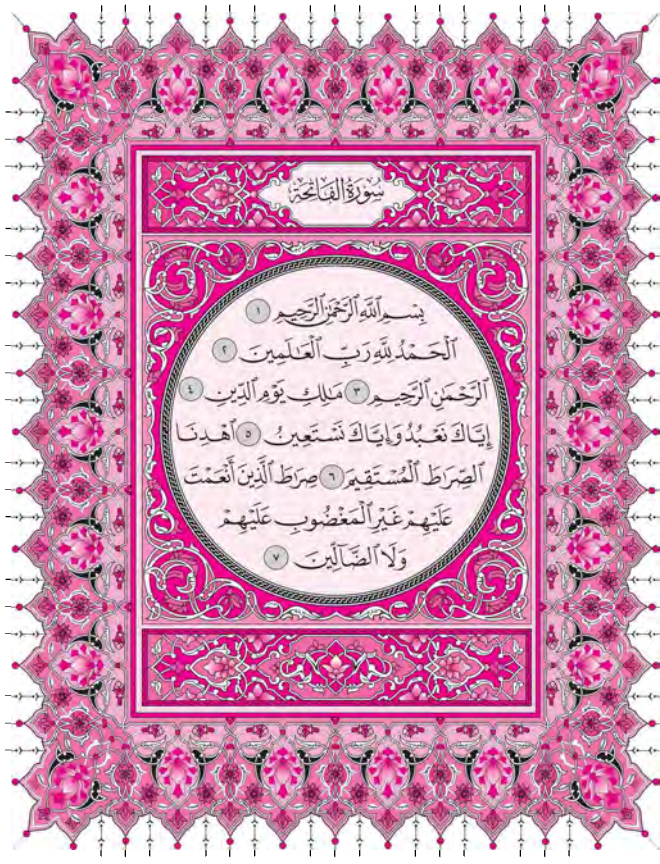 سُورَةُ الفَاتِحَة
بِسْمِ ٱللَّهِ ٱلرَّحْمَٰنِ ٱلرَّحِيمِ ١
ٱلْحَمْدُ لِلَّهِ رَبِّ ٱلْعَٰلَمِينَ ٢
ٱلرَّحْمَٰنِ ٱلرَّحِيمِ ٣ مَٰلِكِ يَوْمِ ٱلدِّينِ ٤
إِيَّاكَ نَعْبُدُ وَإِيَّاكَ نَسْتَعِينُ ٥ ٱهْدِنَا
ٱلصِّرَٰطَ ٱلْمُسْتَقِيمَ ٦ صِرَٰطَ ٱلَّذِينَ أَنْعَمْتَ
عَلَيْهِمْ غَيْرِ ٱلْمَغْضُوبِ عَلَيْهِمْ
وَلَا ٱلضَّآلِّينَ ٧